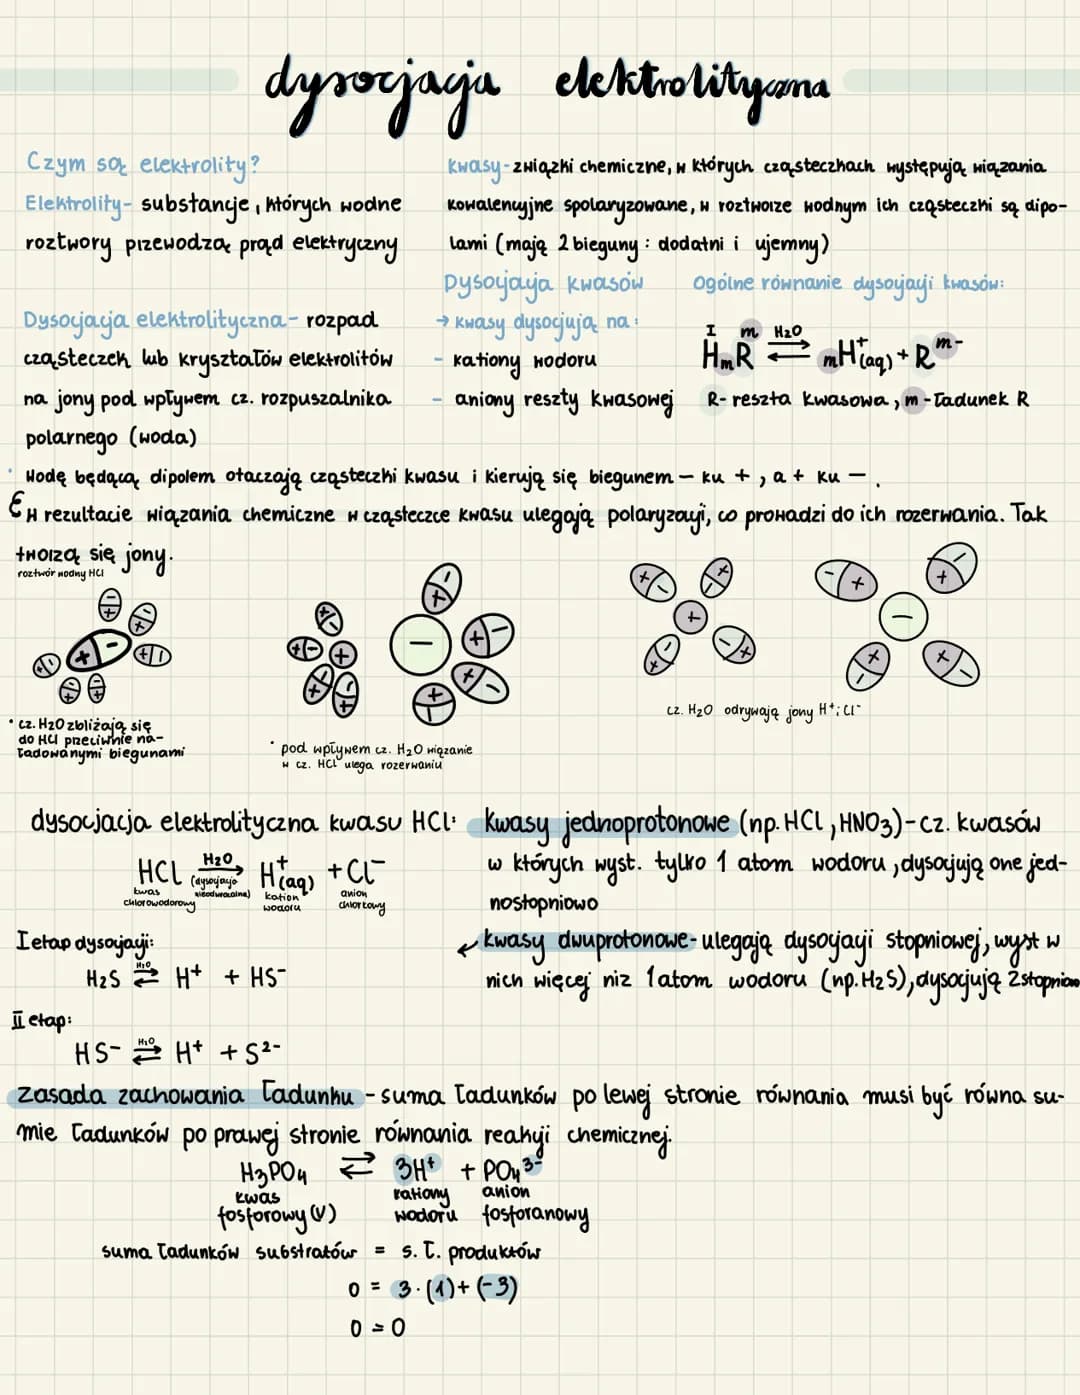 dysocjacja elektrolityczna
Czym są elektrolity?
Elektrolity- substancje, których wodne
roztwory przewodzą prąd elektryczny
Dysocjacja elektrolityczna- rozpad
cząsteczek lub kryształów elektrolitów
na jony pod wpływem cz. rozpuszalnika
polarnego (woda)
Kwasy-związki chemiczne, w których cząsteczkach występują wiązania
kowalencyjne spolaryzowane, w roztworze wodnym ich cząsteczki są dipo-
lami (mają 2 bieguny: dodatni i ujemny)
Dysocjacja kwasów
→ kwasy dysocjują na:
- kationy wodoru
- aniony reszty kwasowej
Ogólne równanie dysocjacji kwasów:
I m H₂O
HmR ⇄ mH⁺(aq) + R^m-
R- reszta kwasowa, m-ładunek R
Wodę będącą dipolem otaczają cząsteczki kwasu i kierują się biegunem – ku +, a + ku –.
W rezultacie wiązania chemiczne w cząsteczce kwasu ulegają polaryzacji, co prowadzi do ich rozerwania. Tak
tworzą się jony.
roztwór wodny HCl
• cz. H₂O zbliżają się
do HCl przeciwnie na-
ładowanymi biegunami
• pod wpływem cz. H₂O wiązanie
w cz. HCl ulega rozerwaniu
cz. H₂O odrywają jony H⁺ i Cl⁻
dysocjacja elektrolityczna kwasu HCl:
H₂O
HCl → H⁺(aq) + Cl⁻
(dysocjacja
nieodwracalna)
kwas
chlorowodorowy
kation
wodoru
anion
chlorkowy
Kwasy jednoprotonowe (np. HCl, HNO₃)-cz. kwasów
w których wyst. tylko 1 atom wodoru, dysocjują one jed-
nostopniowo
I etap dysocjacji:
H₂O
H₂S ⇄ H⁺ + HS⁻
↙ kwasy dwuprotonowe- ulegają dysocjacji stopniowej, wyst w
nich więcej niz 1 atom wodoru (np. H₂S), dysocjują 2stopniowo
II etap:
H₂O
HS⁻ ⇄ H⁺ + S²⁻
zasada zachowania ładunku - suma ładunków po lewej stronie równania musi być równa su-
mie ładunków po prawej stronie równania reakcji chemicznej.
H₃PO₄ ⇄ 3H⁺ + PO₄³⁻
kwas
fosforowy (V)
kationy
wodoru
anion
fosforanowy
suma ładunków substratów = s. ł. produktów
0 = 3·(1)+(-3)
0 = 0